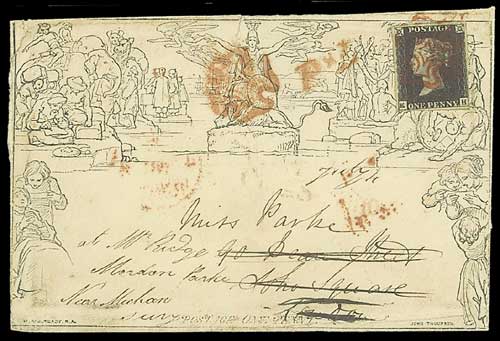 POSTAGE
ONE PENNY
Miss Parke
at Mr Ridge 90 Dean Street
Mordon Parke, Soho Square
Near Micham London
Surry POSTAGE ONE PENNY.
W. MULREADY. R.A. JOHN THOMPSON